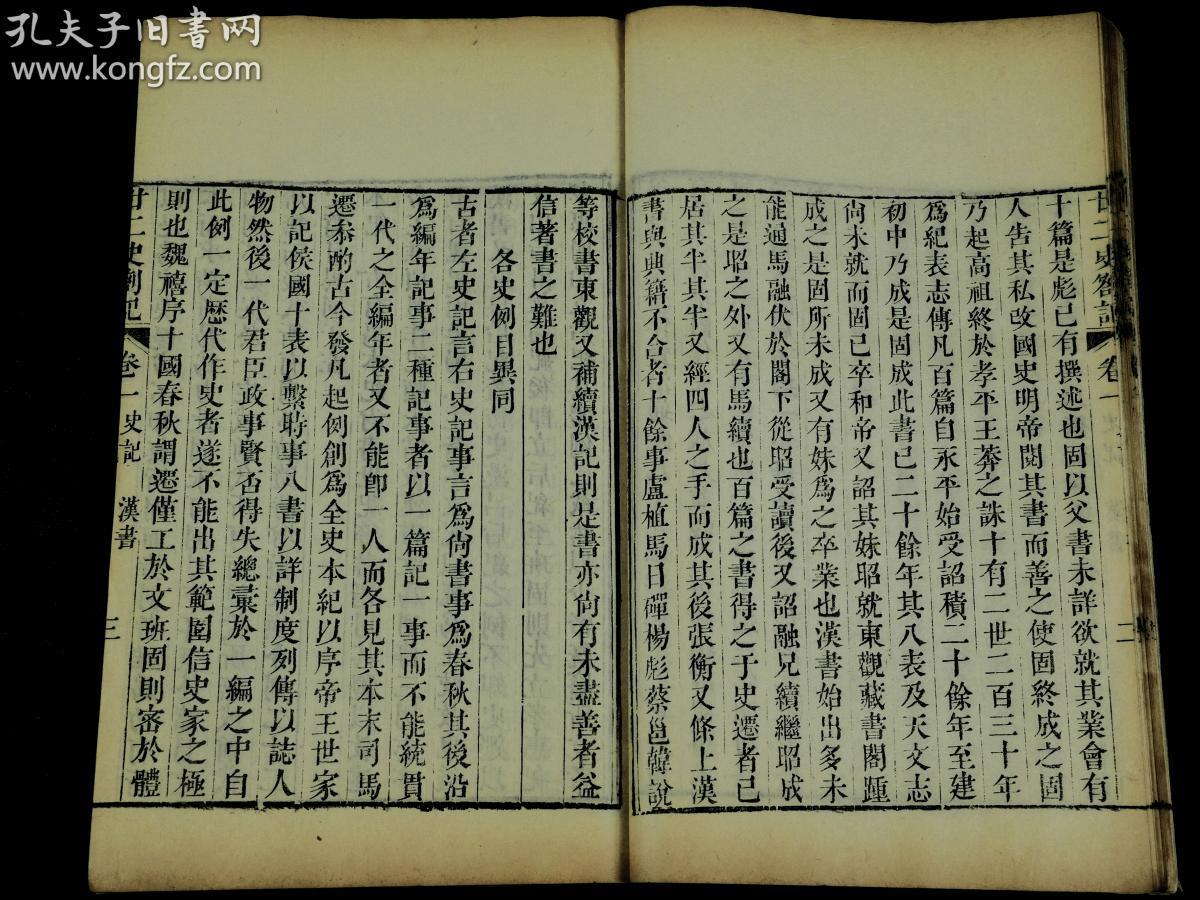 孔夫子旧书网
www.kongfz.com
廿二史劄記
卷一
二
十篇是彪已有撰述也固以父書未詳欲就其業會有
人告其私改國史明帝閱其書而善之使固終成之固
乃起高祖終於孝平王莽之誅十有二世二百三十年
爲紀表志傳凡百篇自永平始受詔積二十餘年至建
初中乃成是固成此書已二十餘年其八表及天文志
尙未就而固已卒和帝又詔其妹昭就東觀藏書閣踵
成之是固所未成又有妹爲之卒業也漢書始出多未
能通馬融伏於閣下從昭受讀後又詔融兄續繼昭成
之是昭之外又有馬續也百篇之書得之于史遷者已
居其半其半又經四人之手而成其後張衡又條上漢
書與典籍不合者十餘事盧植馬日磾楊彪蔡邕韓說
等校書東觀又補續漢記則是書亦尙有未盡善者益
信著書之難也
各史例目異同
古者左史記言右史記事言爲尙書事爲春秋其後沿
爲編年記事二種記事者以一篇記一事而不能統貫
一代之全編年者又不能卽一人而各見其本末司馬
遷叅酌古今發凡起例創爲全史本紀以序帝王世家
以記侯國十表以繫時事八書以詳制度列傳以誌人
物然後一代君臣政事賢否得失總彙於一編之中自
此例一定歷代作史者遂不能出其範圍信史家之極
則也魏禧序十國春秋謂遷僅工於文班固則審於體
廿二史劄記
卷一 史記 漢書
三